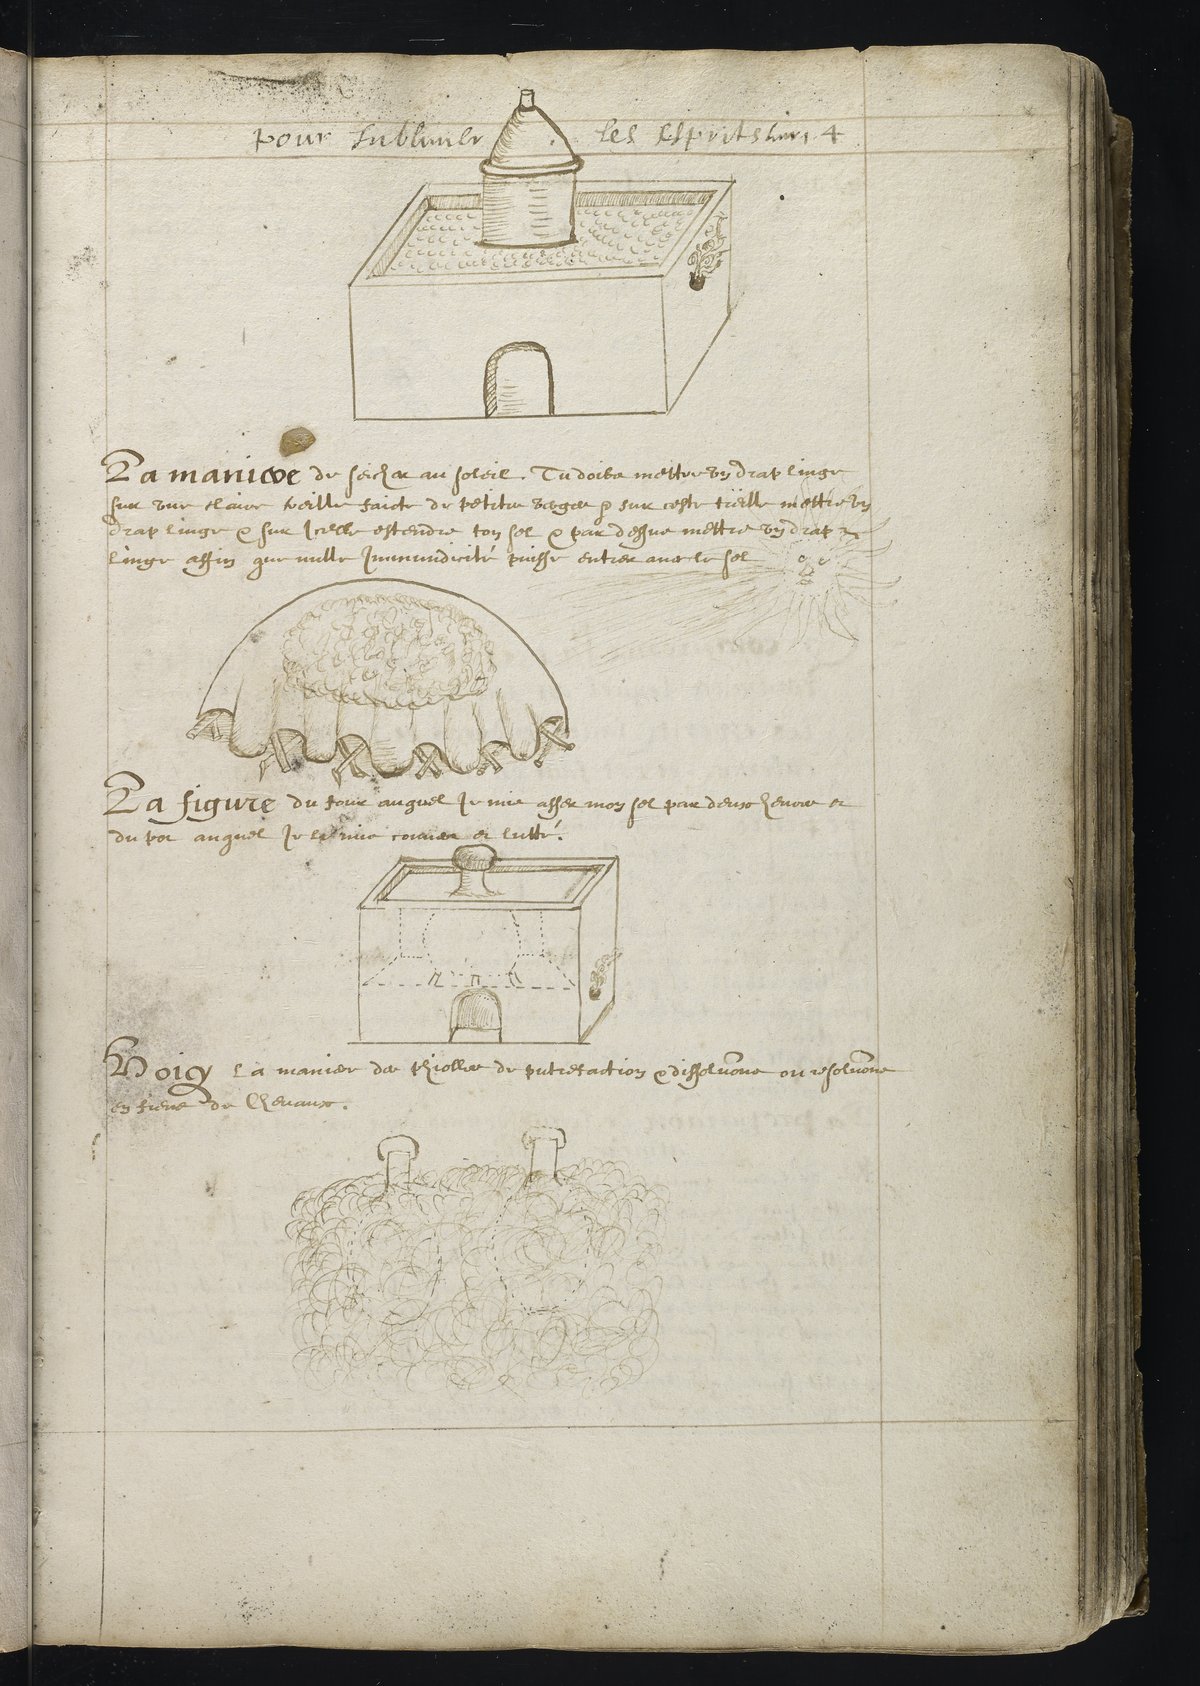 pour sublimer les Esprits livre 4
La maniere de seicher au soleil. Tu doibs mettre un drap linge
sur une claire veille faicte de petites verges & sur ceste mettre un
drap linge & sur Icelle estendre ton sel & par dessus mettre un drap
linge affin que nulle Immundicité puisse entrer avec le sel
La figure du four auquel Je mis asser mon sel par deux heures et
du pot auquel Je le mis couver et lutté.
Voicy la maniere des phiolles de putrefaction & dissolutions ou resolutions
en fiens de Chevaux.